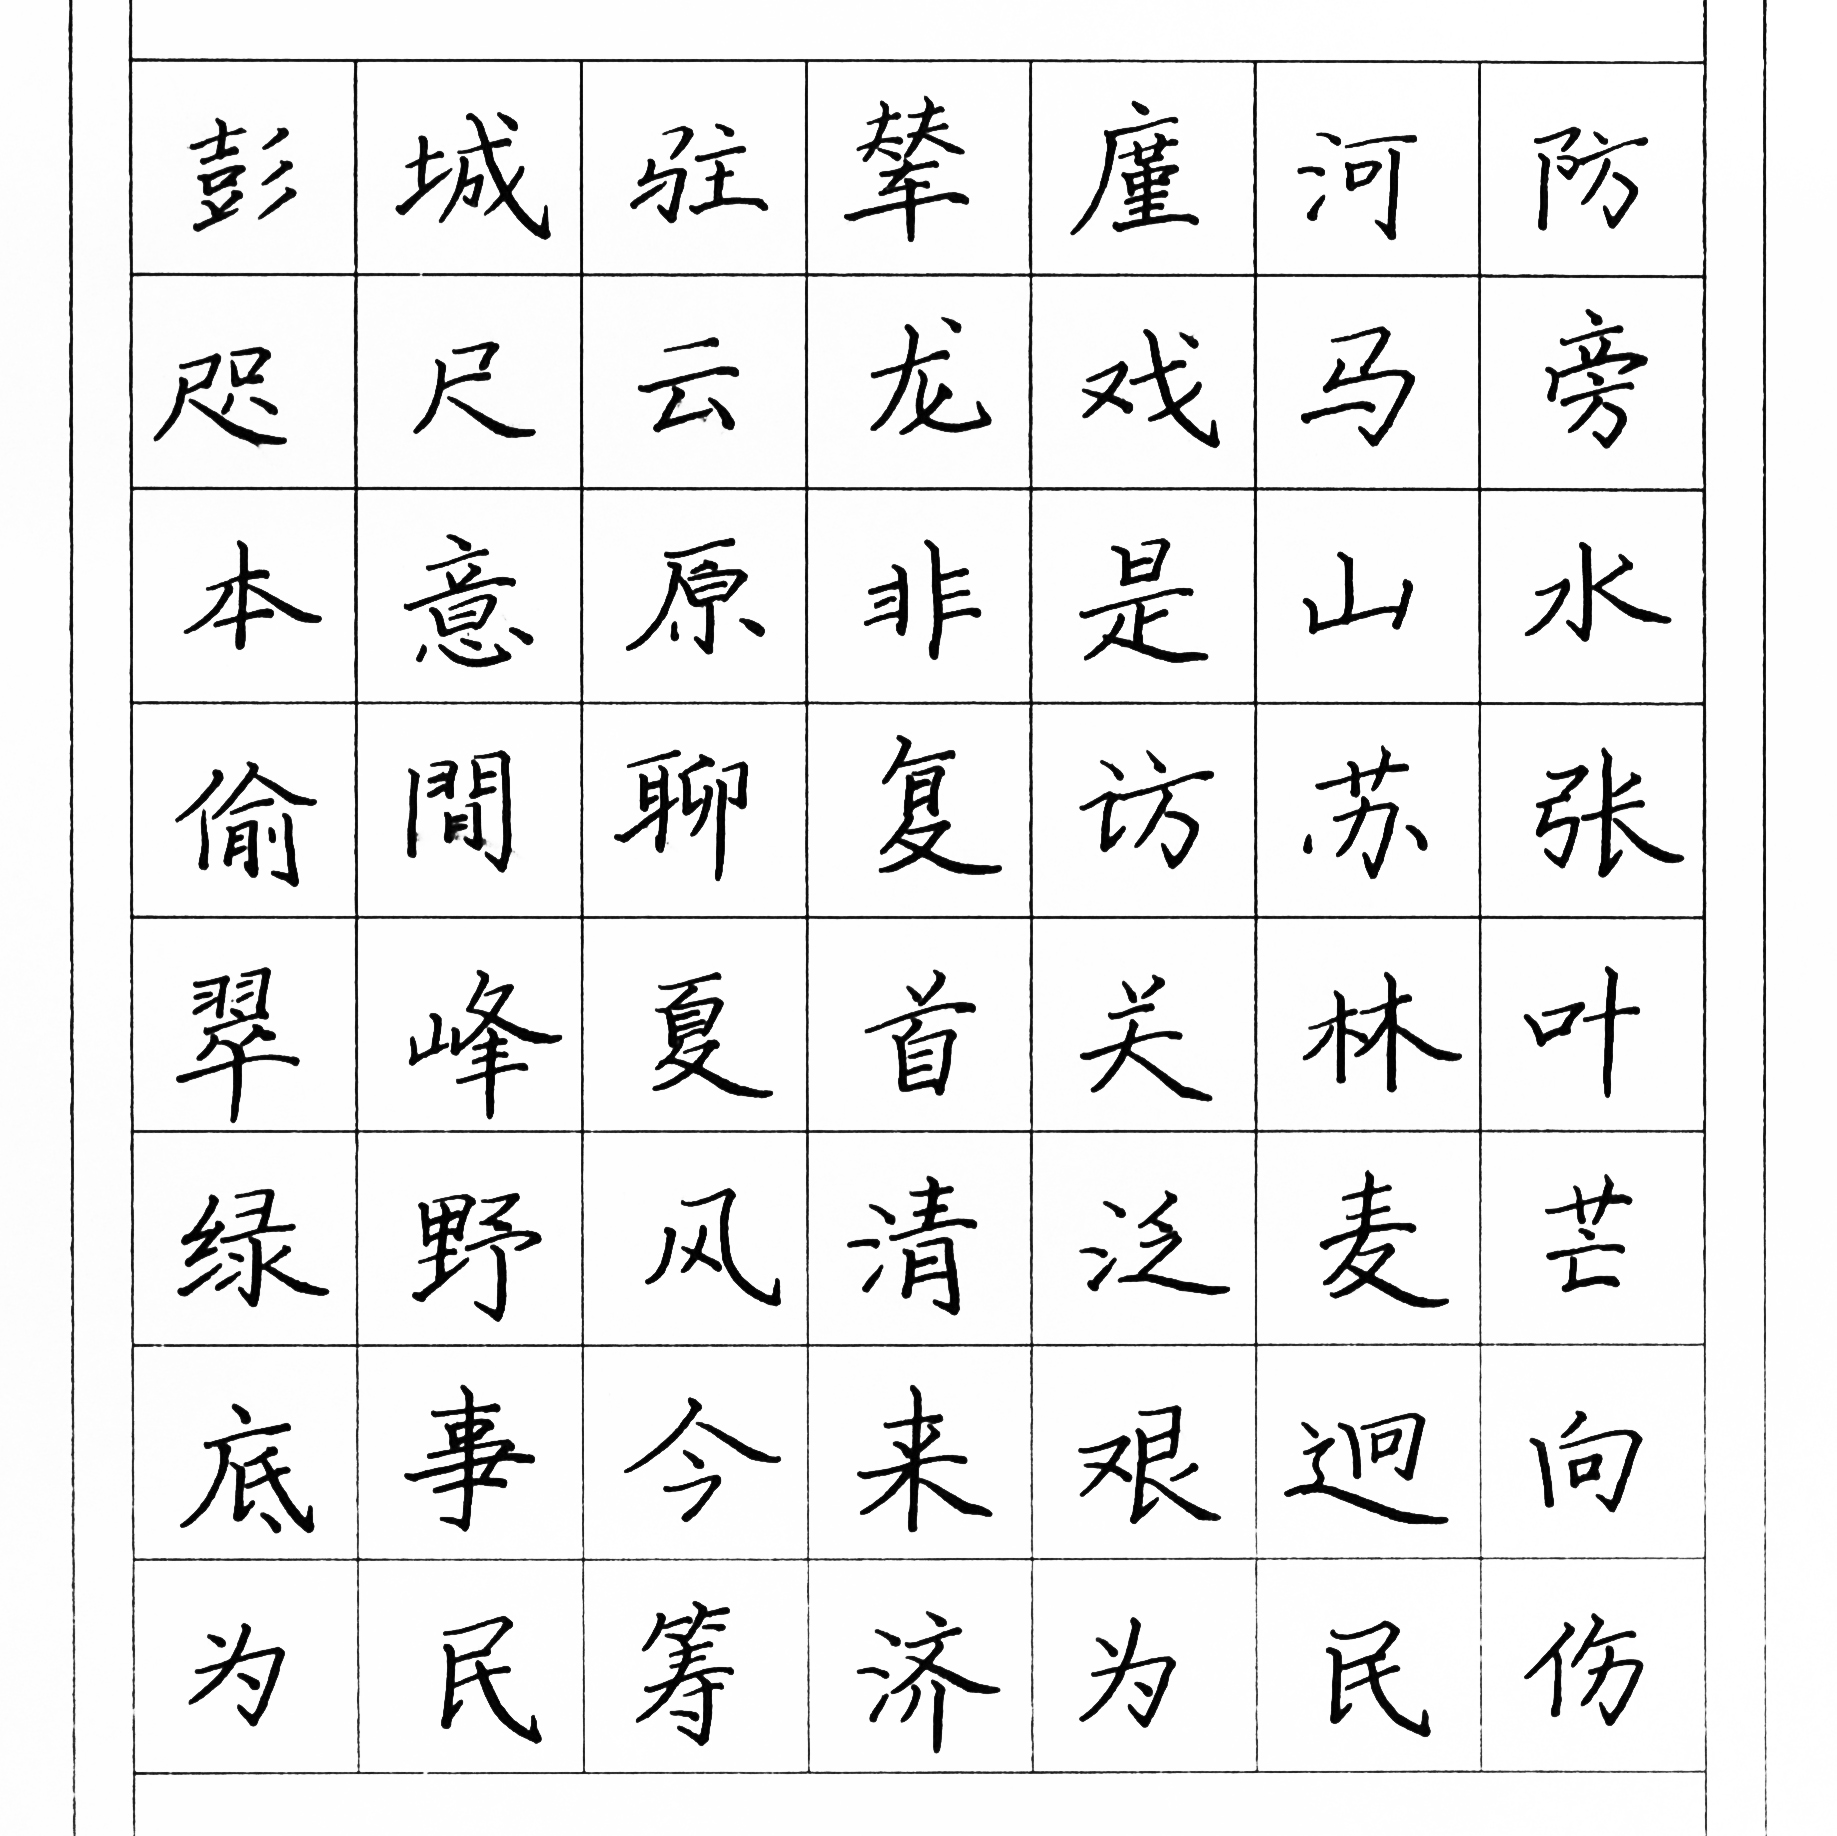 彭城驻辇廑河防
咫尺云龙戏马旁
本意原非是山水
偷間聊复访苏张
翠峰夏首关林叶
绿野风清泛麦芒
底事今来艰迥向
为民筹济为民伤